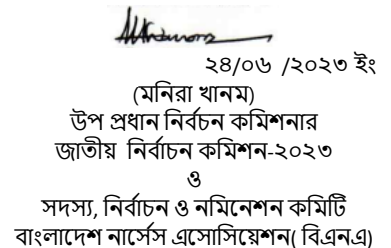 ২৪/০৬ /২০২৩ ইং
(মনিরা খানম)
উপ প্রধান নির্বচন কমিশনার
জাতীয় নির্বাচন কমিশন-২০২৩
ও
সদস্য, নির্বাচন ও নমিনেশন কমিটি
বাংলাদেশ নার্সেস এসোসিয়েশন( বিএনএ)